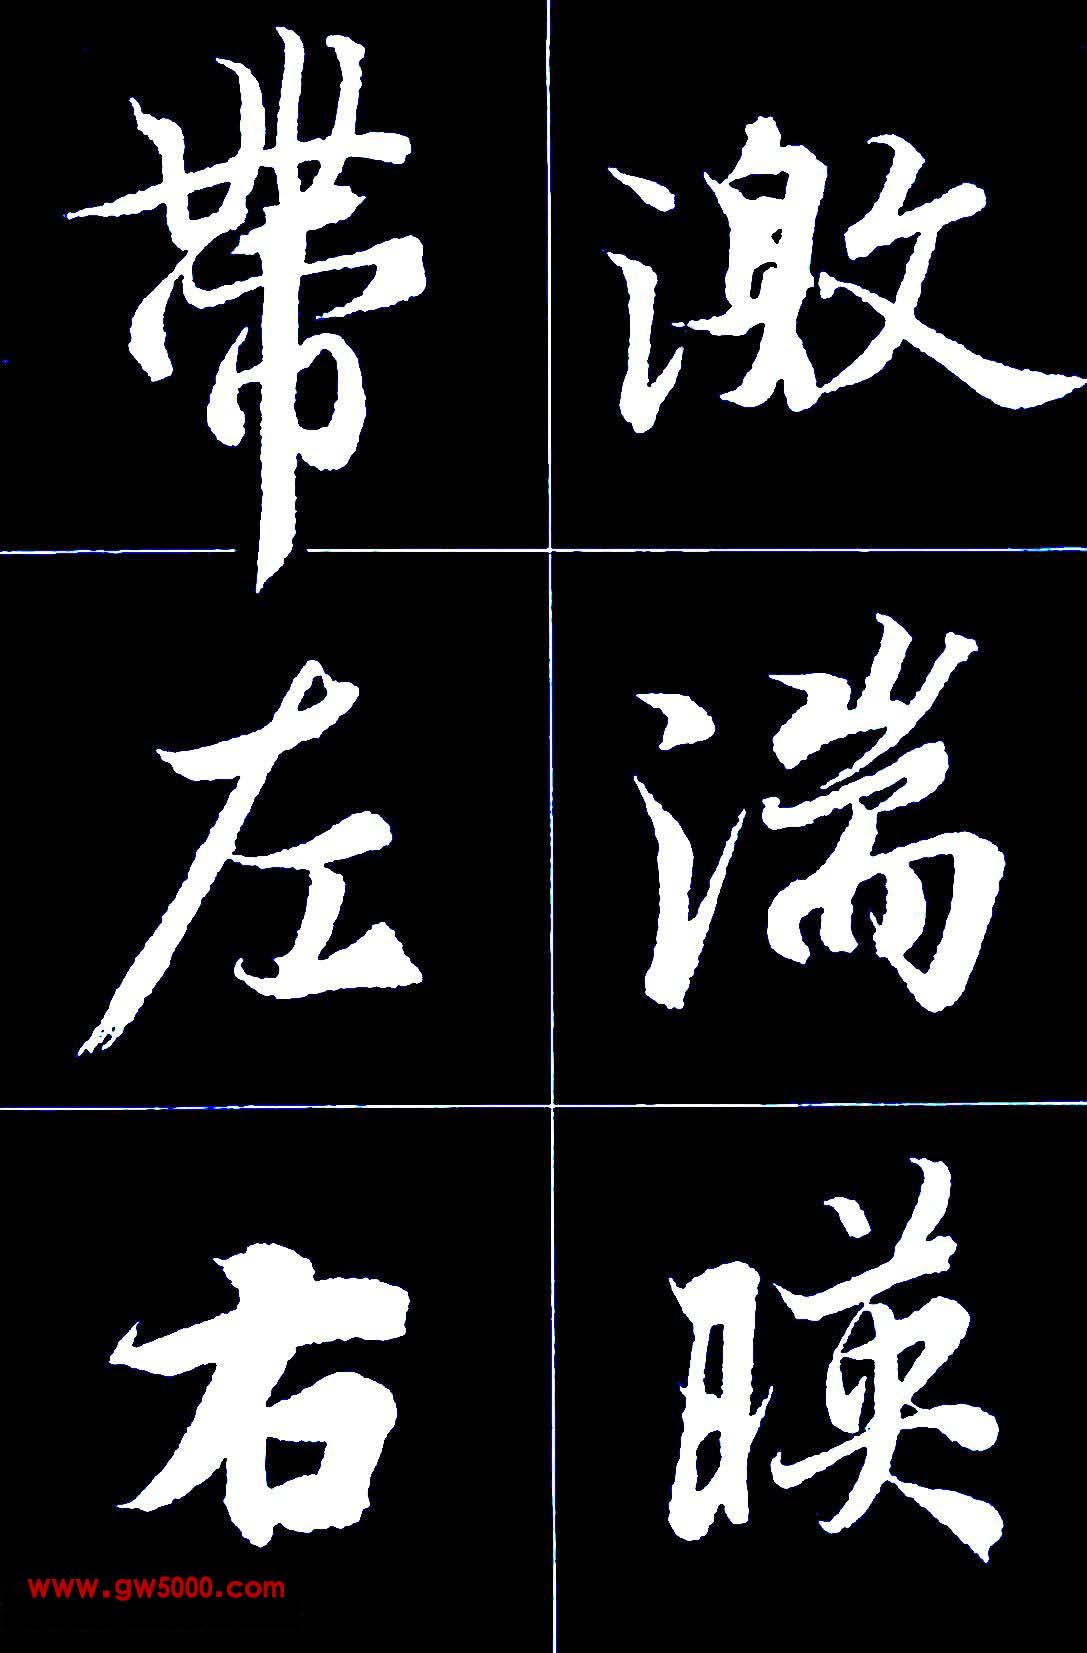 激湍暎
帶左右
www.gw5000.com